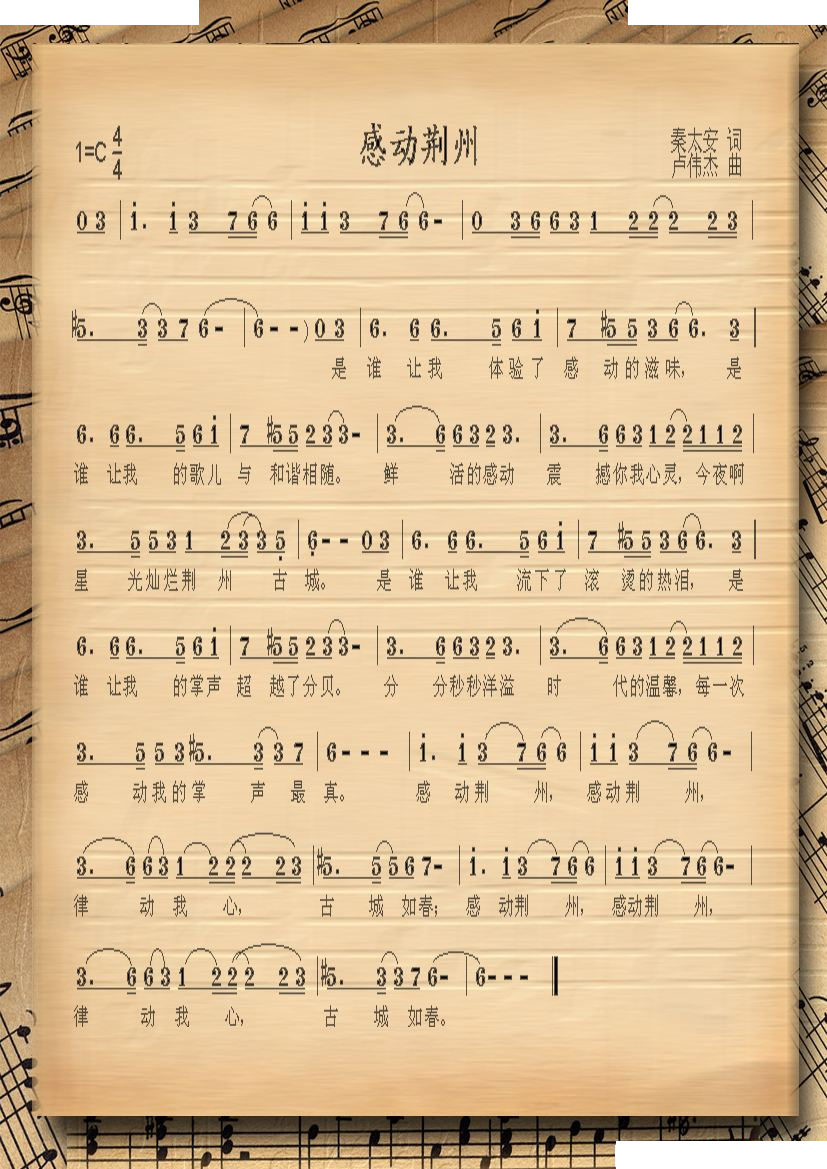 1=C 4/4 感动荆州 秦太安 词
卢伟杰 曲
0 3 | i. i 3 7 6 6 | i i 3 7 6 6 - | 0 3 6 6 3 1 2 2 2 2 3 |
#5. 3 3 7 6 - | 6 - - ) 0 3 | 6. 6 6. 5 6 i | 7 #5 5 3 6 6. 3 |
是 谁 让我 体验了 感 动的滋味, 是
6. 6 6. 5 6 i | 7 #5 5 2 3 3 - | 3. 6 6 3 2 3. | 3. 6 6 3 1 2 2 1 1 2 |
谁 让我 的歌儿 与 和谐相随。 鲜 活的感动 震 撼你我心灵, 今夜啊
3. 5 5 3 1 2 3 3 5 | 6 - - 0 3 | 6. 6 6. 5 6 i | 7 #5 5 3 6 6. 3 |
星 光灿烂荆 州 古 城。 是 谁 让我 流下了 滚 烫的热泪, 是
6. 6 6. 5 6 i | 7 #5 5 2 3 3 - | 3. 6 6 3 2 3. | 3. 6 6 3 1 2 2 1 1 2 |
谁 让我 的掌声 超 越了分贝。 分 分秒秒洋溢 时 代的温馨, 每一次
3. 5 5 3 #5. 3 3 7 | 6 - - - | i. i 3 7 6 6 | i i 3 7 6 6 - |
感 动我的掌 声 最 真。 感 动荆 州, 感动荆 州,
3. 6 6 3 1 2 2 2 2 3 | #5. 5 5 6 7 - | i. i 3 7 6 6 | i i 3 7 6 6 - |
律 动 我 心, 古 城 如春; 感 动荆 州, 感动荆 州,
3. 6 6 3 1 2 2 2 2 3 | #5. 3 3 7 6 - | 6 - - - ‖
律 动 我 心, 古 城 如春。